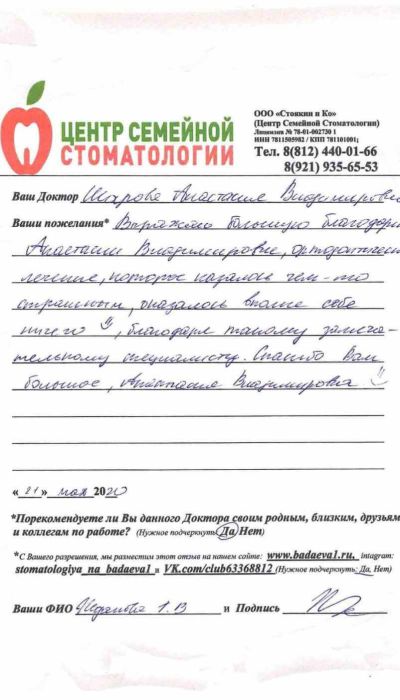 ЦЕНТР СЕМЕЙНОЙ
СТОМАТОЛОГИИ
ООО «Стоякин и Ко»
(Центр Семейной Стоматологии)
Лицензия № 78-01-002730 1
ИНН 7811505982 / КПП 781101001;
Тел. 8(812) 440-01-66
8(921) 935-65-53
Ваш Доктор Шарова Анастасия Владимировн
Ваши пожелания* Выражаю большую благодарн
Анастасии Владимировне, ортодонтическ
лечение, которое казалось чем-то
страшным, оказалось вполне себе
ничего, благодаря такому замеча-
тельному специалисту. Спасибо Вам
большое, Анастасия Владимировна!
« 21 » мая 2020
*Порекомендуете ли Вы данного Доктора своим родным, близким, друзьям
и коллегам по работе? (Нужное подчеркнуть Да, Нет)
*С Вашего разрешения, мы разместим этот отзыв на нашем сайте: www.badaeva1.ru, intagram:
stomatologiya_na_badaeva1 и VK.com/club63368812 (Нужное подчеркнуть: Да, Нет)
Ваши ФИО Т.В и Подпись